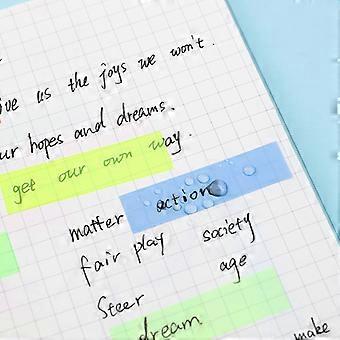 us the joys we won't.
hopes and dreams.
get our own way.
matter action
fair play society
Steer age
dream
make